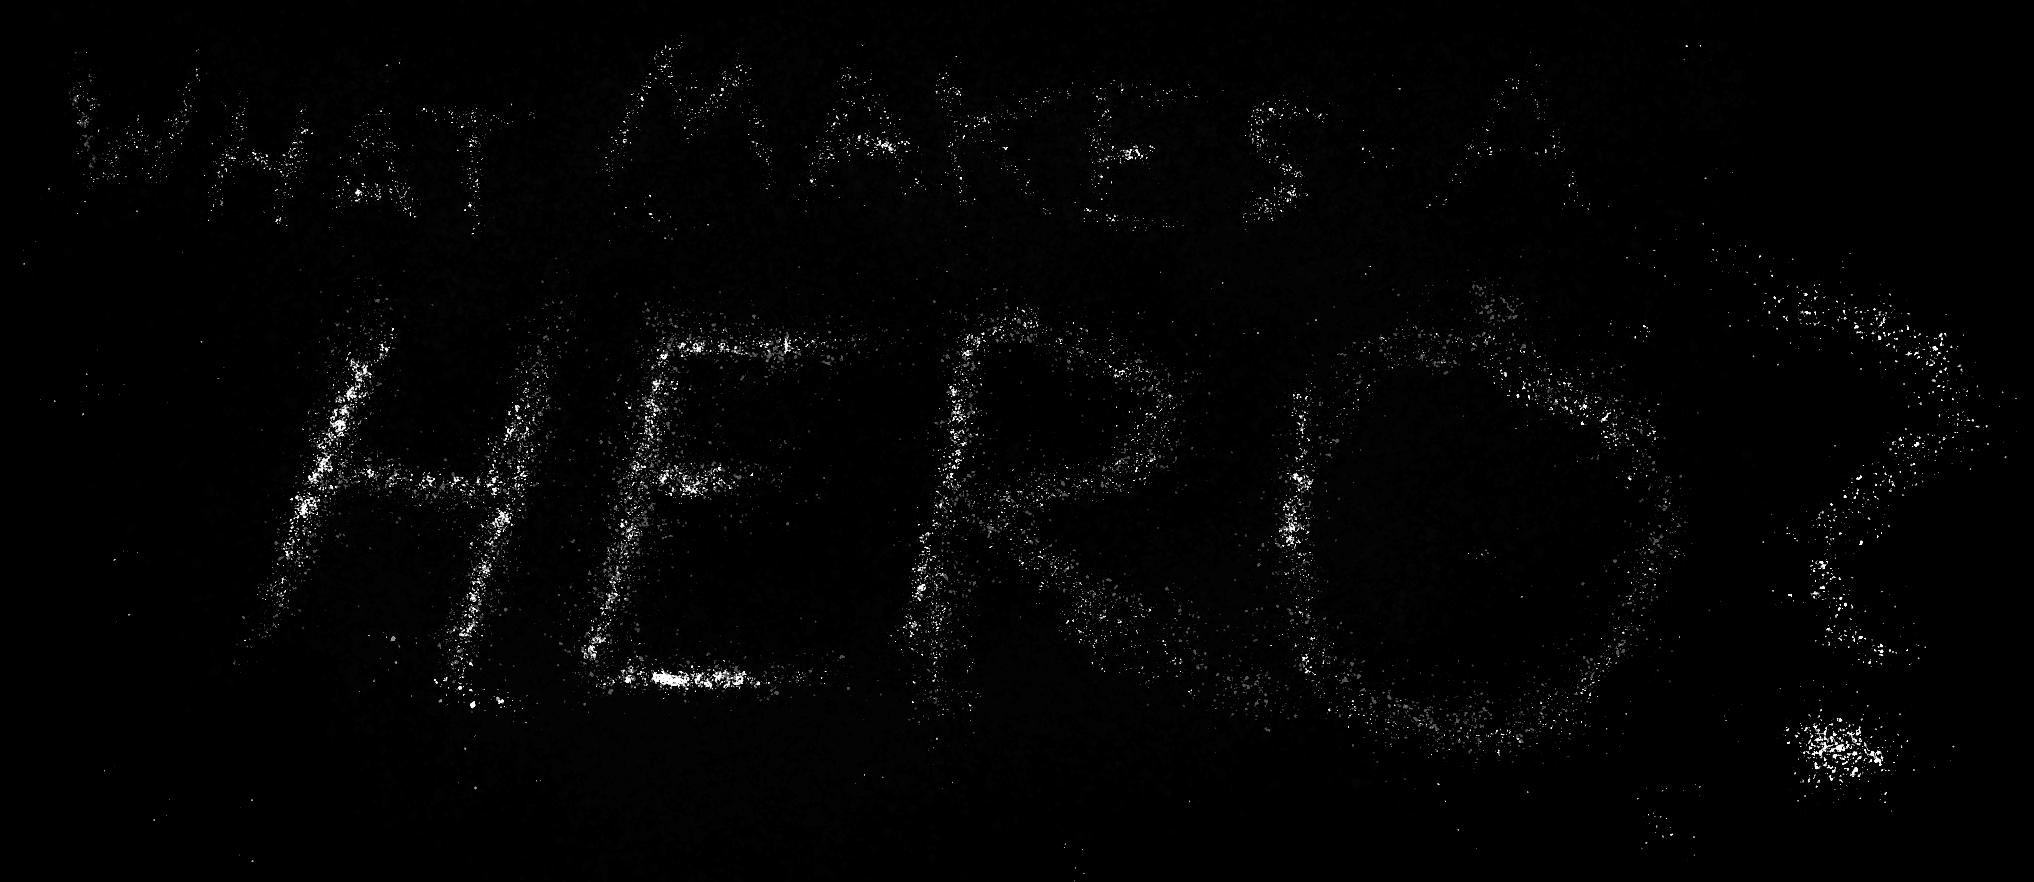 WHAT MAKES A
HERO?